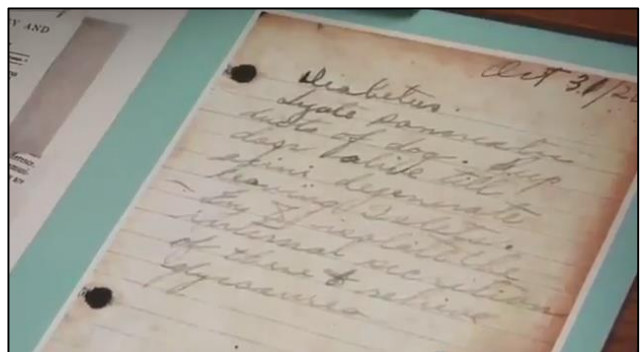 Y AND
Oct 31/2
Diabetus.
Ligate pancreatic
ducts of dog. Keep
dogs alive till
acini degenerate
leaving Islets.
Try to isolate the
internal secretion
of these + relieve
glycosurea